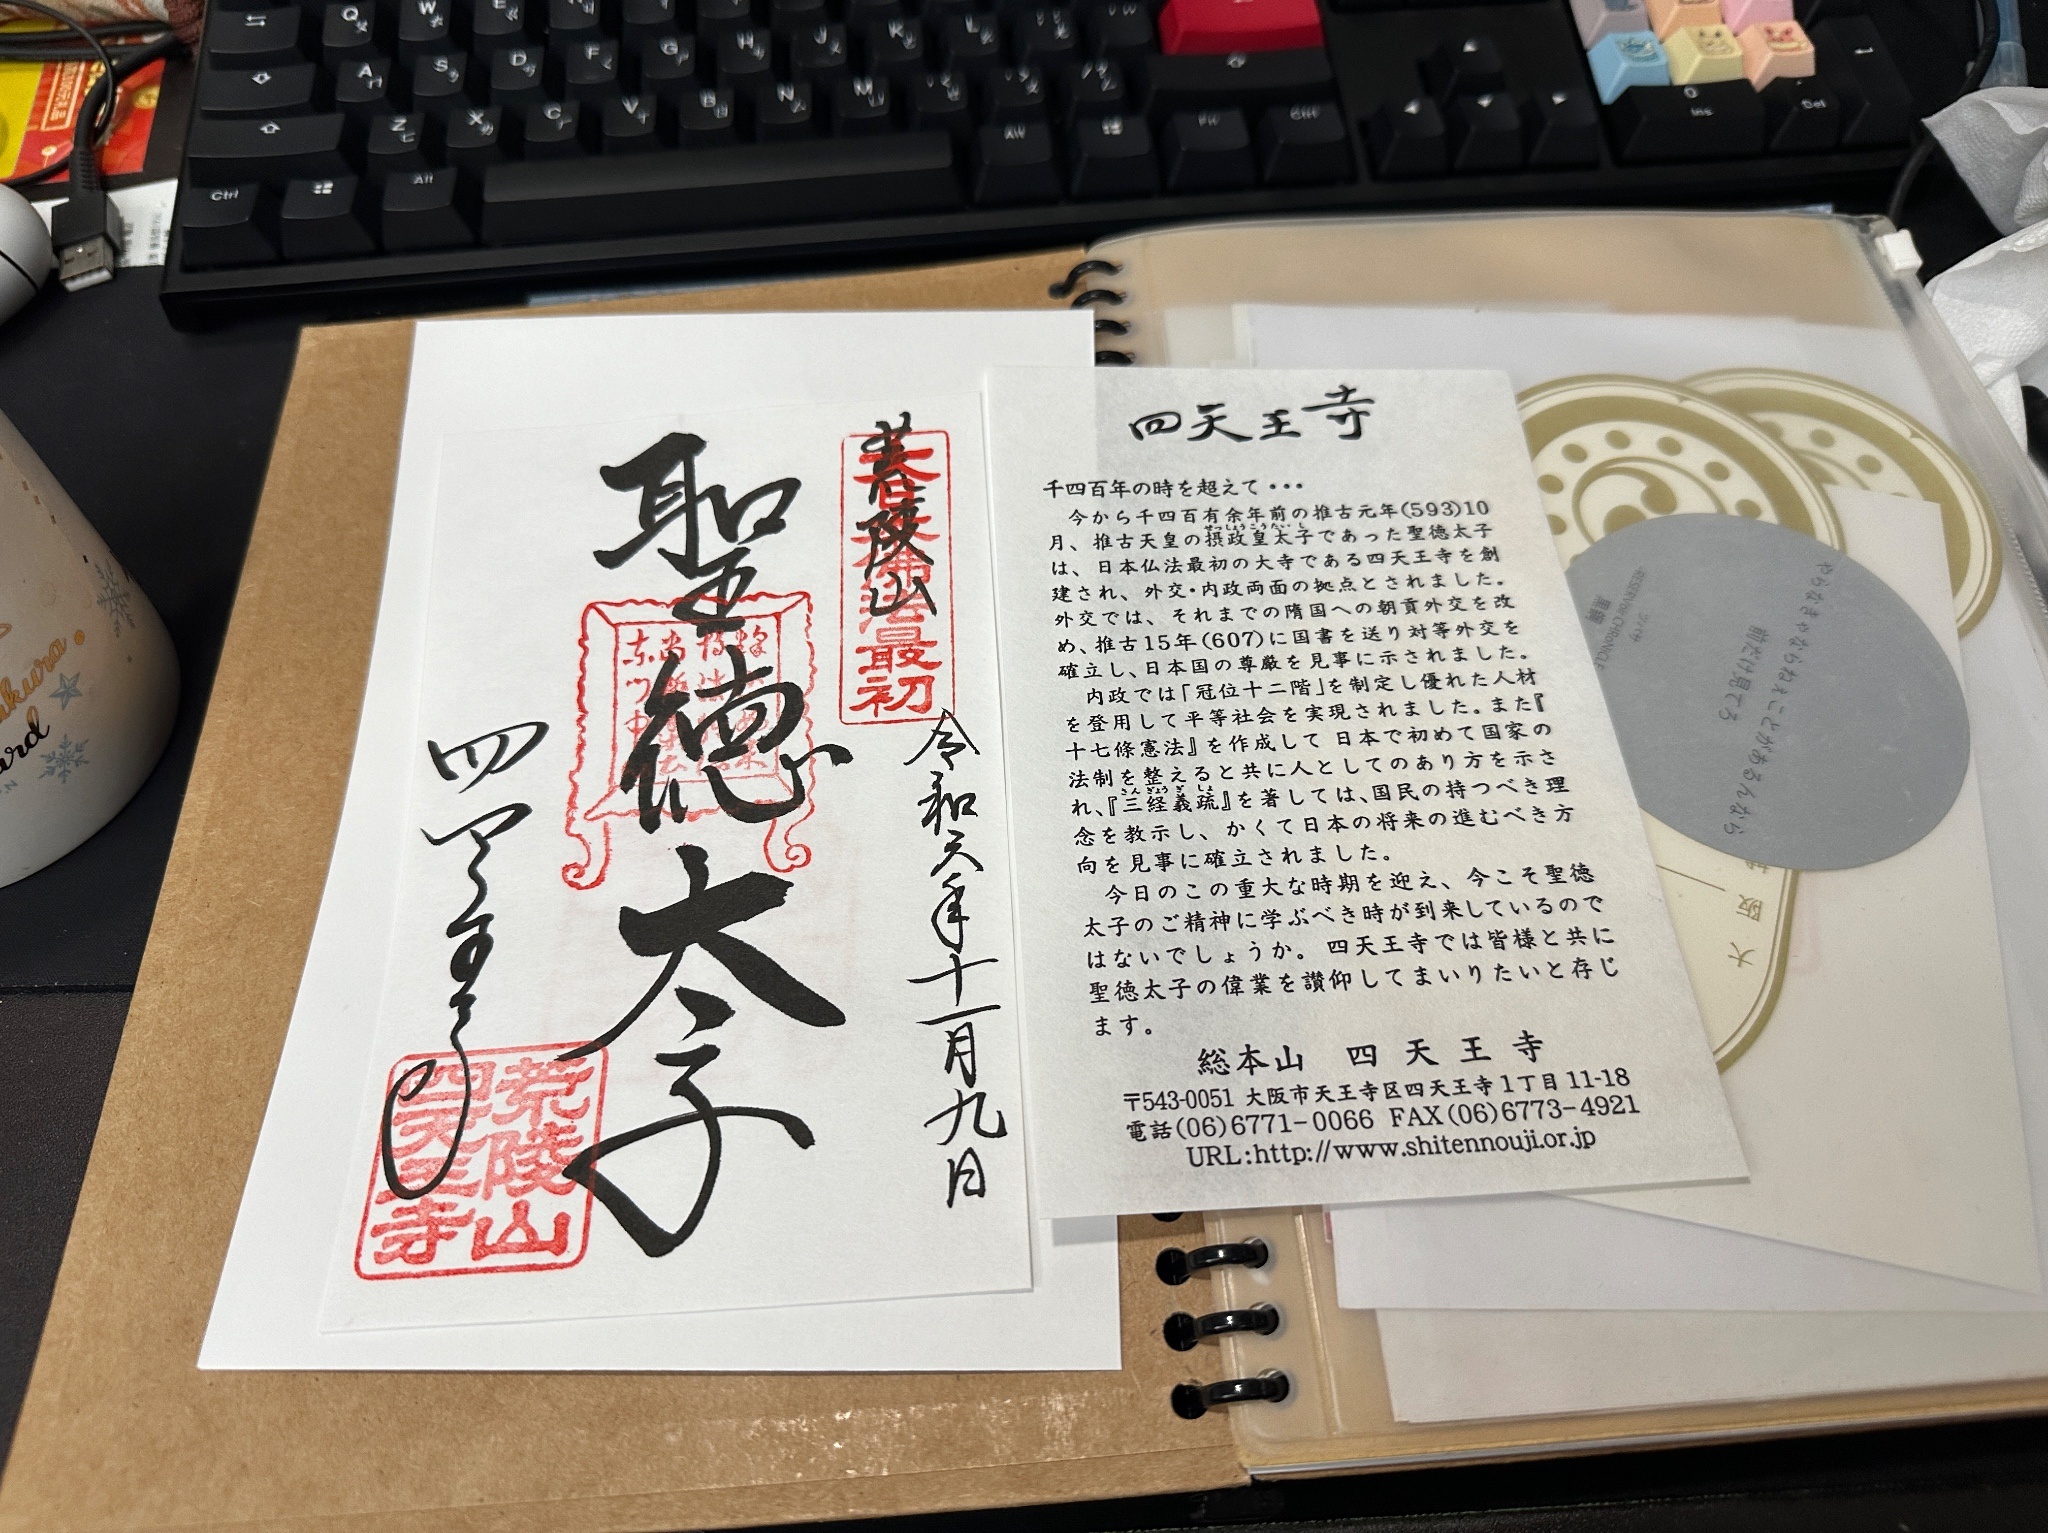 Q
W
E
A
S
D
F
G
H
J
K
L
Z
X
C
V
B
N
M
Alt
Fn
Ctrl
0
Ins
Del
Ctrl
Alt
聖徳太子
荒陵山
大日本佛法最初
令和六年十一月九日
四天王寺
荒陵山
四天王寺
四天王寺
千四百年の時を超えて・・・
今から千四百有余年前の推古元年(593)10
月、推古天皇の摂政皇太子であった聖徳太子
せっしょうこうたいし
は、日本仏法最初の大寺である四天王寺を創
建され、外交・内政両面の拠点とされました。
外交では、それまでの隋国への朝貢外交を改
め、推古15年(607)に国書を送り対等外交を
確立し、日本国の尊厳を見事に示されました。
内政では「冠位十二階」を制定し優れた人材
を登用して平等社会を実現されました。また『
十七條憲法』を作成して日本で初めて国家の
法制を整えると共に人としてのあり方を示さ
れ、『三経義疏』を著しては、国民の持つべき理
さんぎょうぎしょ
念を教示し、かくて日本の将来の進むべき方
向を見事に確立されました。
今日のこの重大な時期を迎え、今こそ聖徳
太子のご精神に学ぶべき時が到来しているので
はないでしょうか。四天王寺では皆様と共に
聖徳太子の偉業を讃仰してまいりたいと存じ
ます。
総本山 四天王寺
〒543-0051 大阪市天王寺区四天王寺1丁目11-18
電話(06)6771-0066 FAX(06)6773-4921
URL:http://www.shitennouji.or.jp
やらなきゃならねぇことがあるんなら
前だけ見てろ
大阪